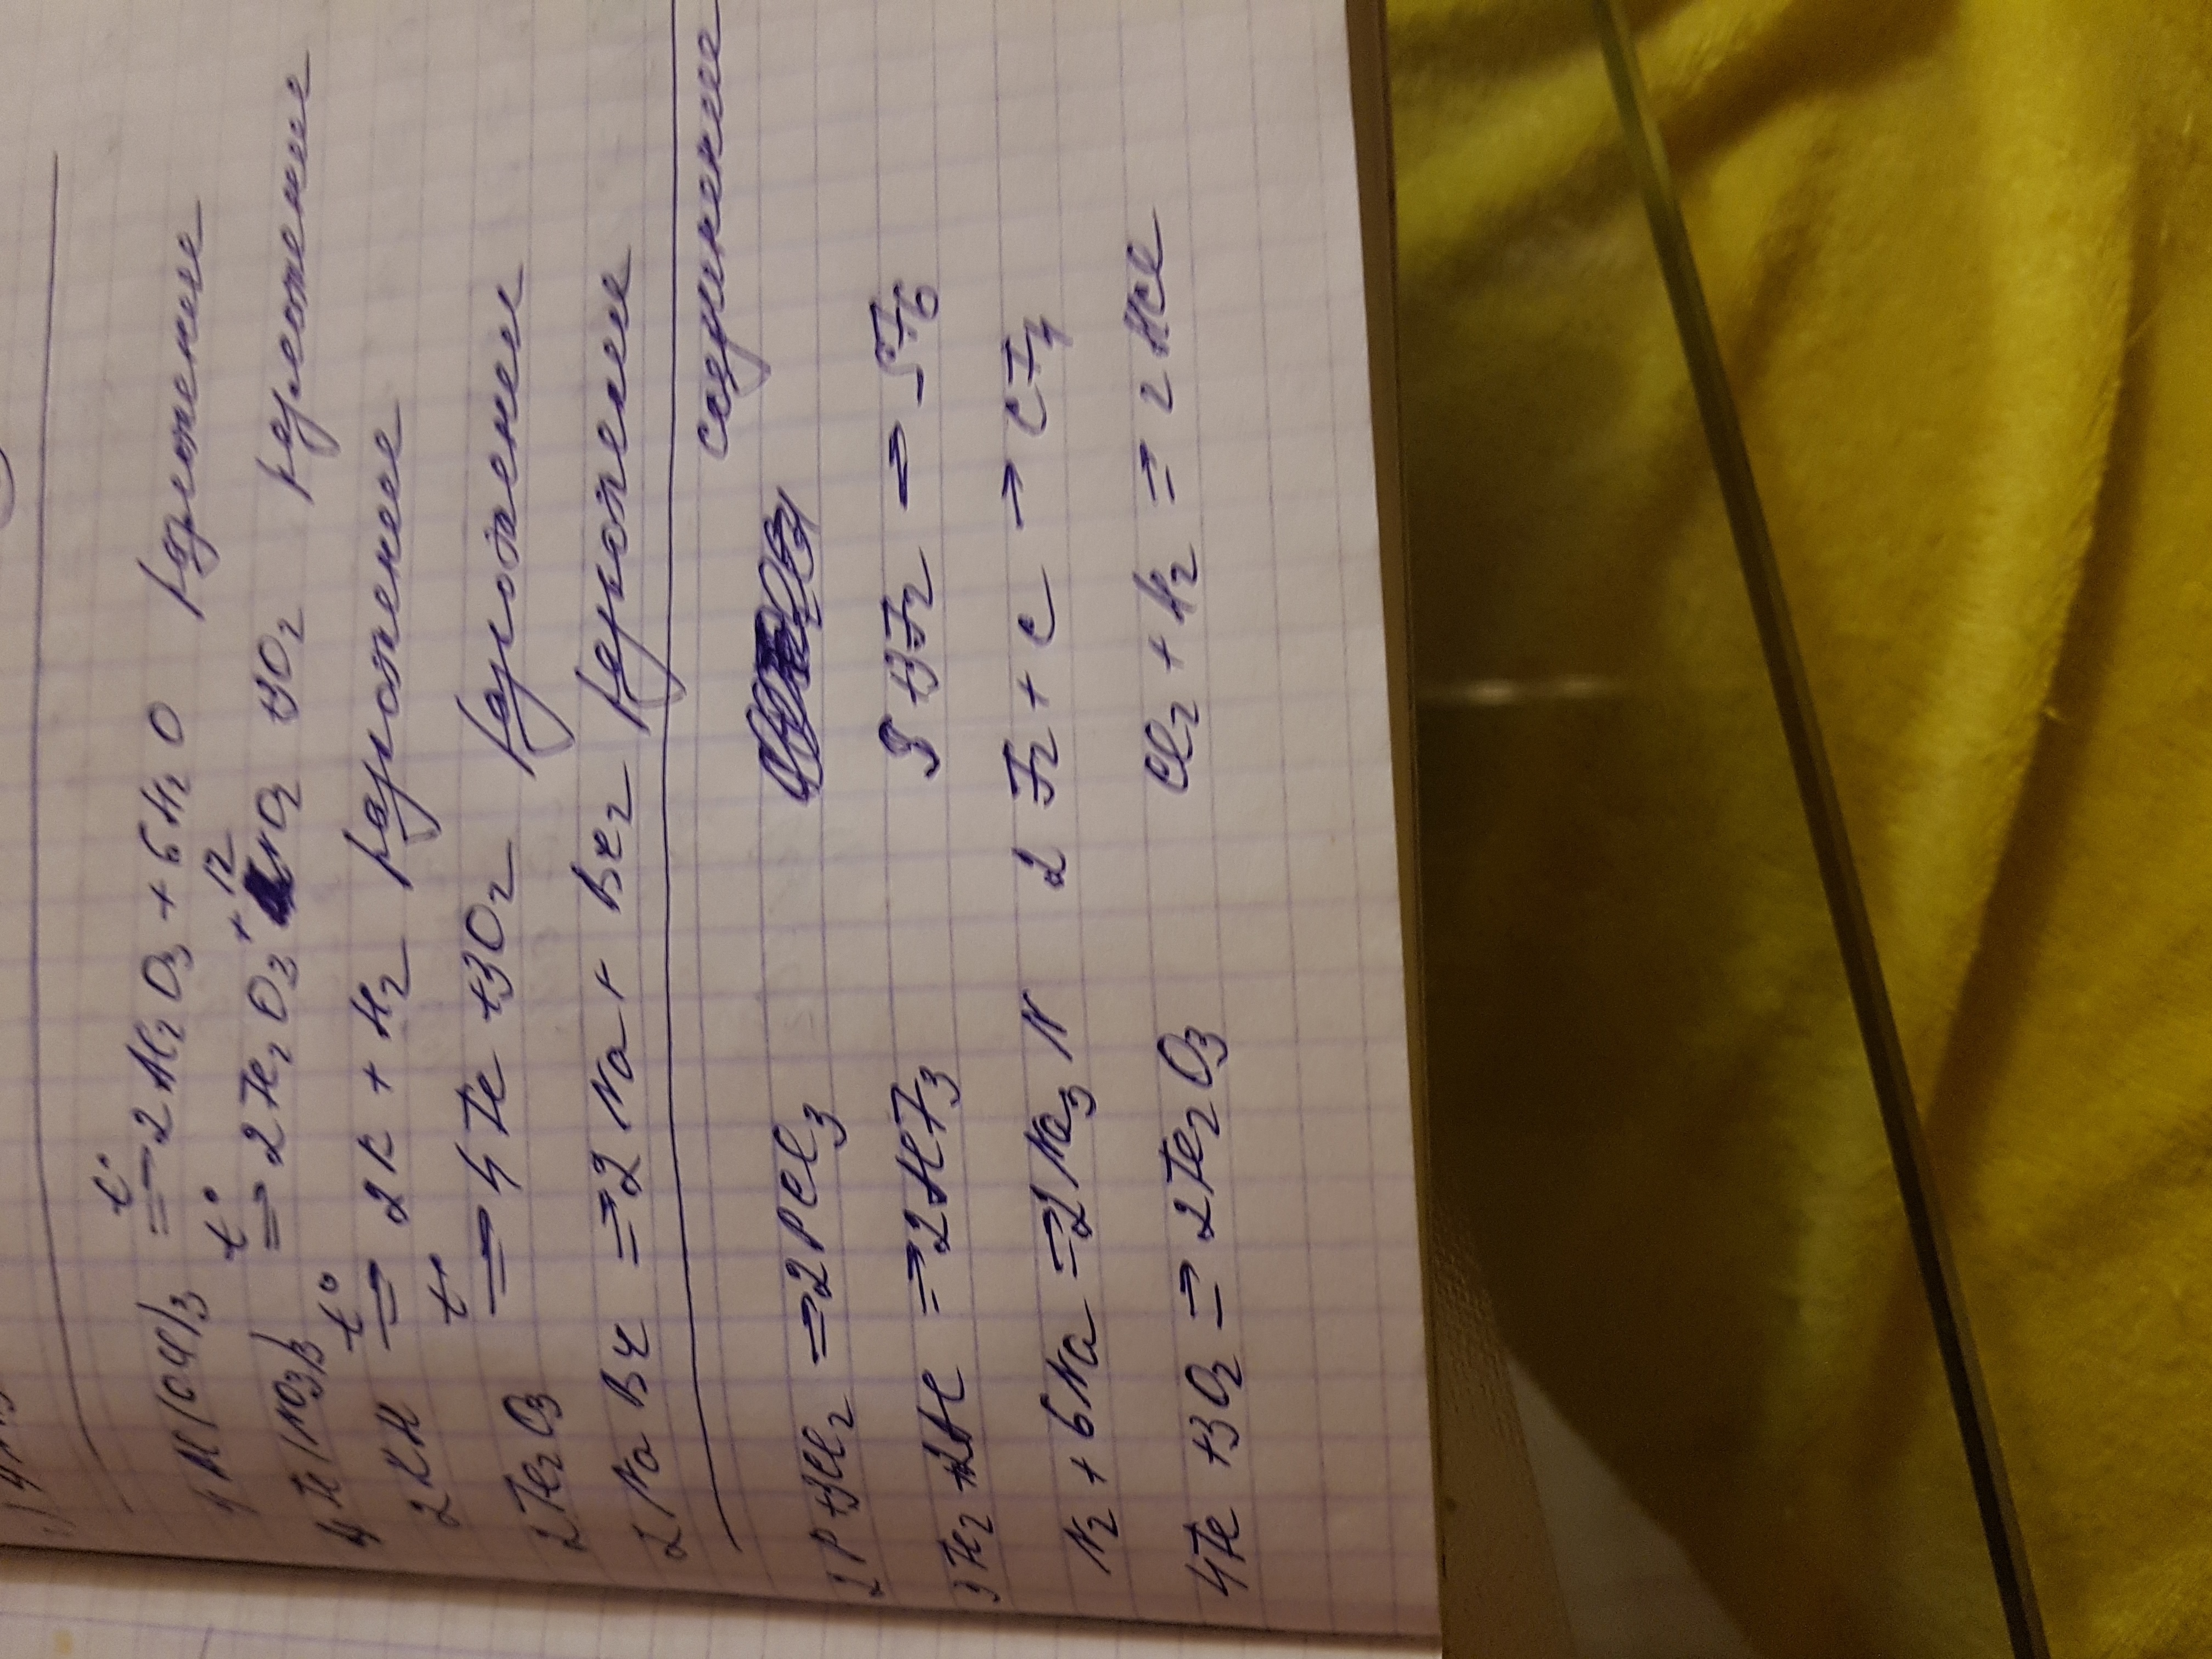 4Al(OH)3 t° = 2Al2O3 + 6H2O разложение
4Fe(NO3)3 t° = 2Fe2O3 + 12 NO2 +3O2 разложение
2KH t° = 2K + H2 разложение
2Fe2O3 t° = 4Fe +3O2 разложение
2NaBr = 2Na + Br2 разложение
соединение
2P +3Cl2 = 2PCl3
3F2 +2Al = 2AlF3 S +3F2 = SF6
N2 + 6Na = 2Na3N 2F2 + C → CF4
4Fe +3O2 = 2Fe2O3 Cl2 + H2 = 2HCl